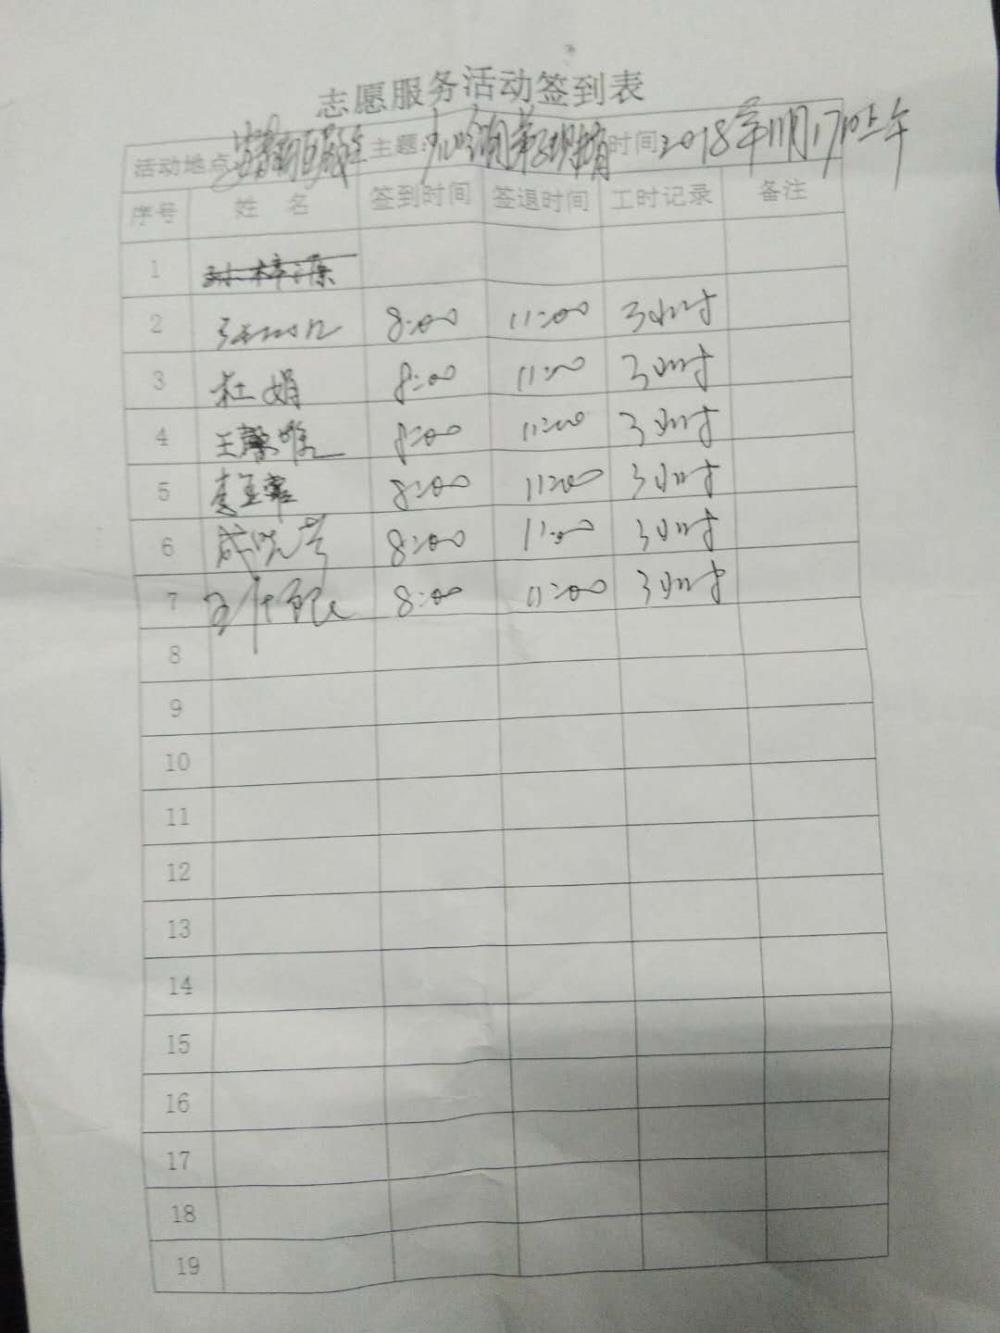 志愿服务活动签到表
活动地点 主题: 时间 2018年11月17日上午
序号 姓 名 签到时间 签退时间 工时记录 备注
1
2 8:00 11:00 3小时
3 杜娟 8:00 11:00 3小时
4 王馨唯 8:00 11:00 3小时
5 8:00 11:00 3小时
6 8:00 11:00 3小时
7 8:00 11:00 3小时
8
9
10
11
12
13
14
15
16
17
18
19